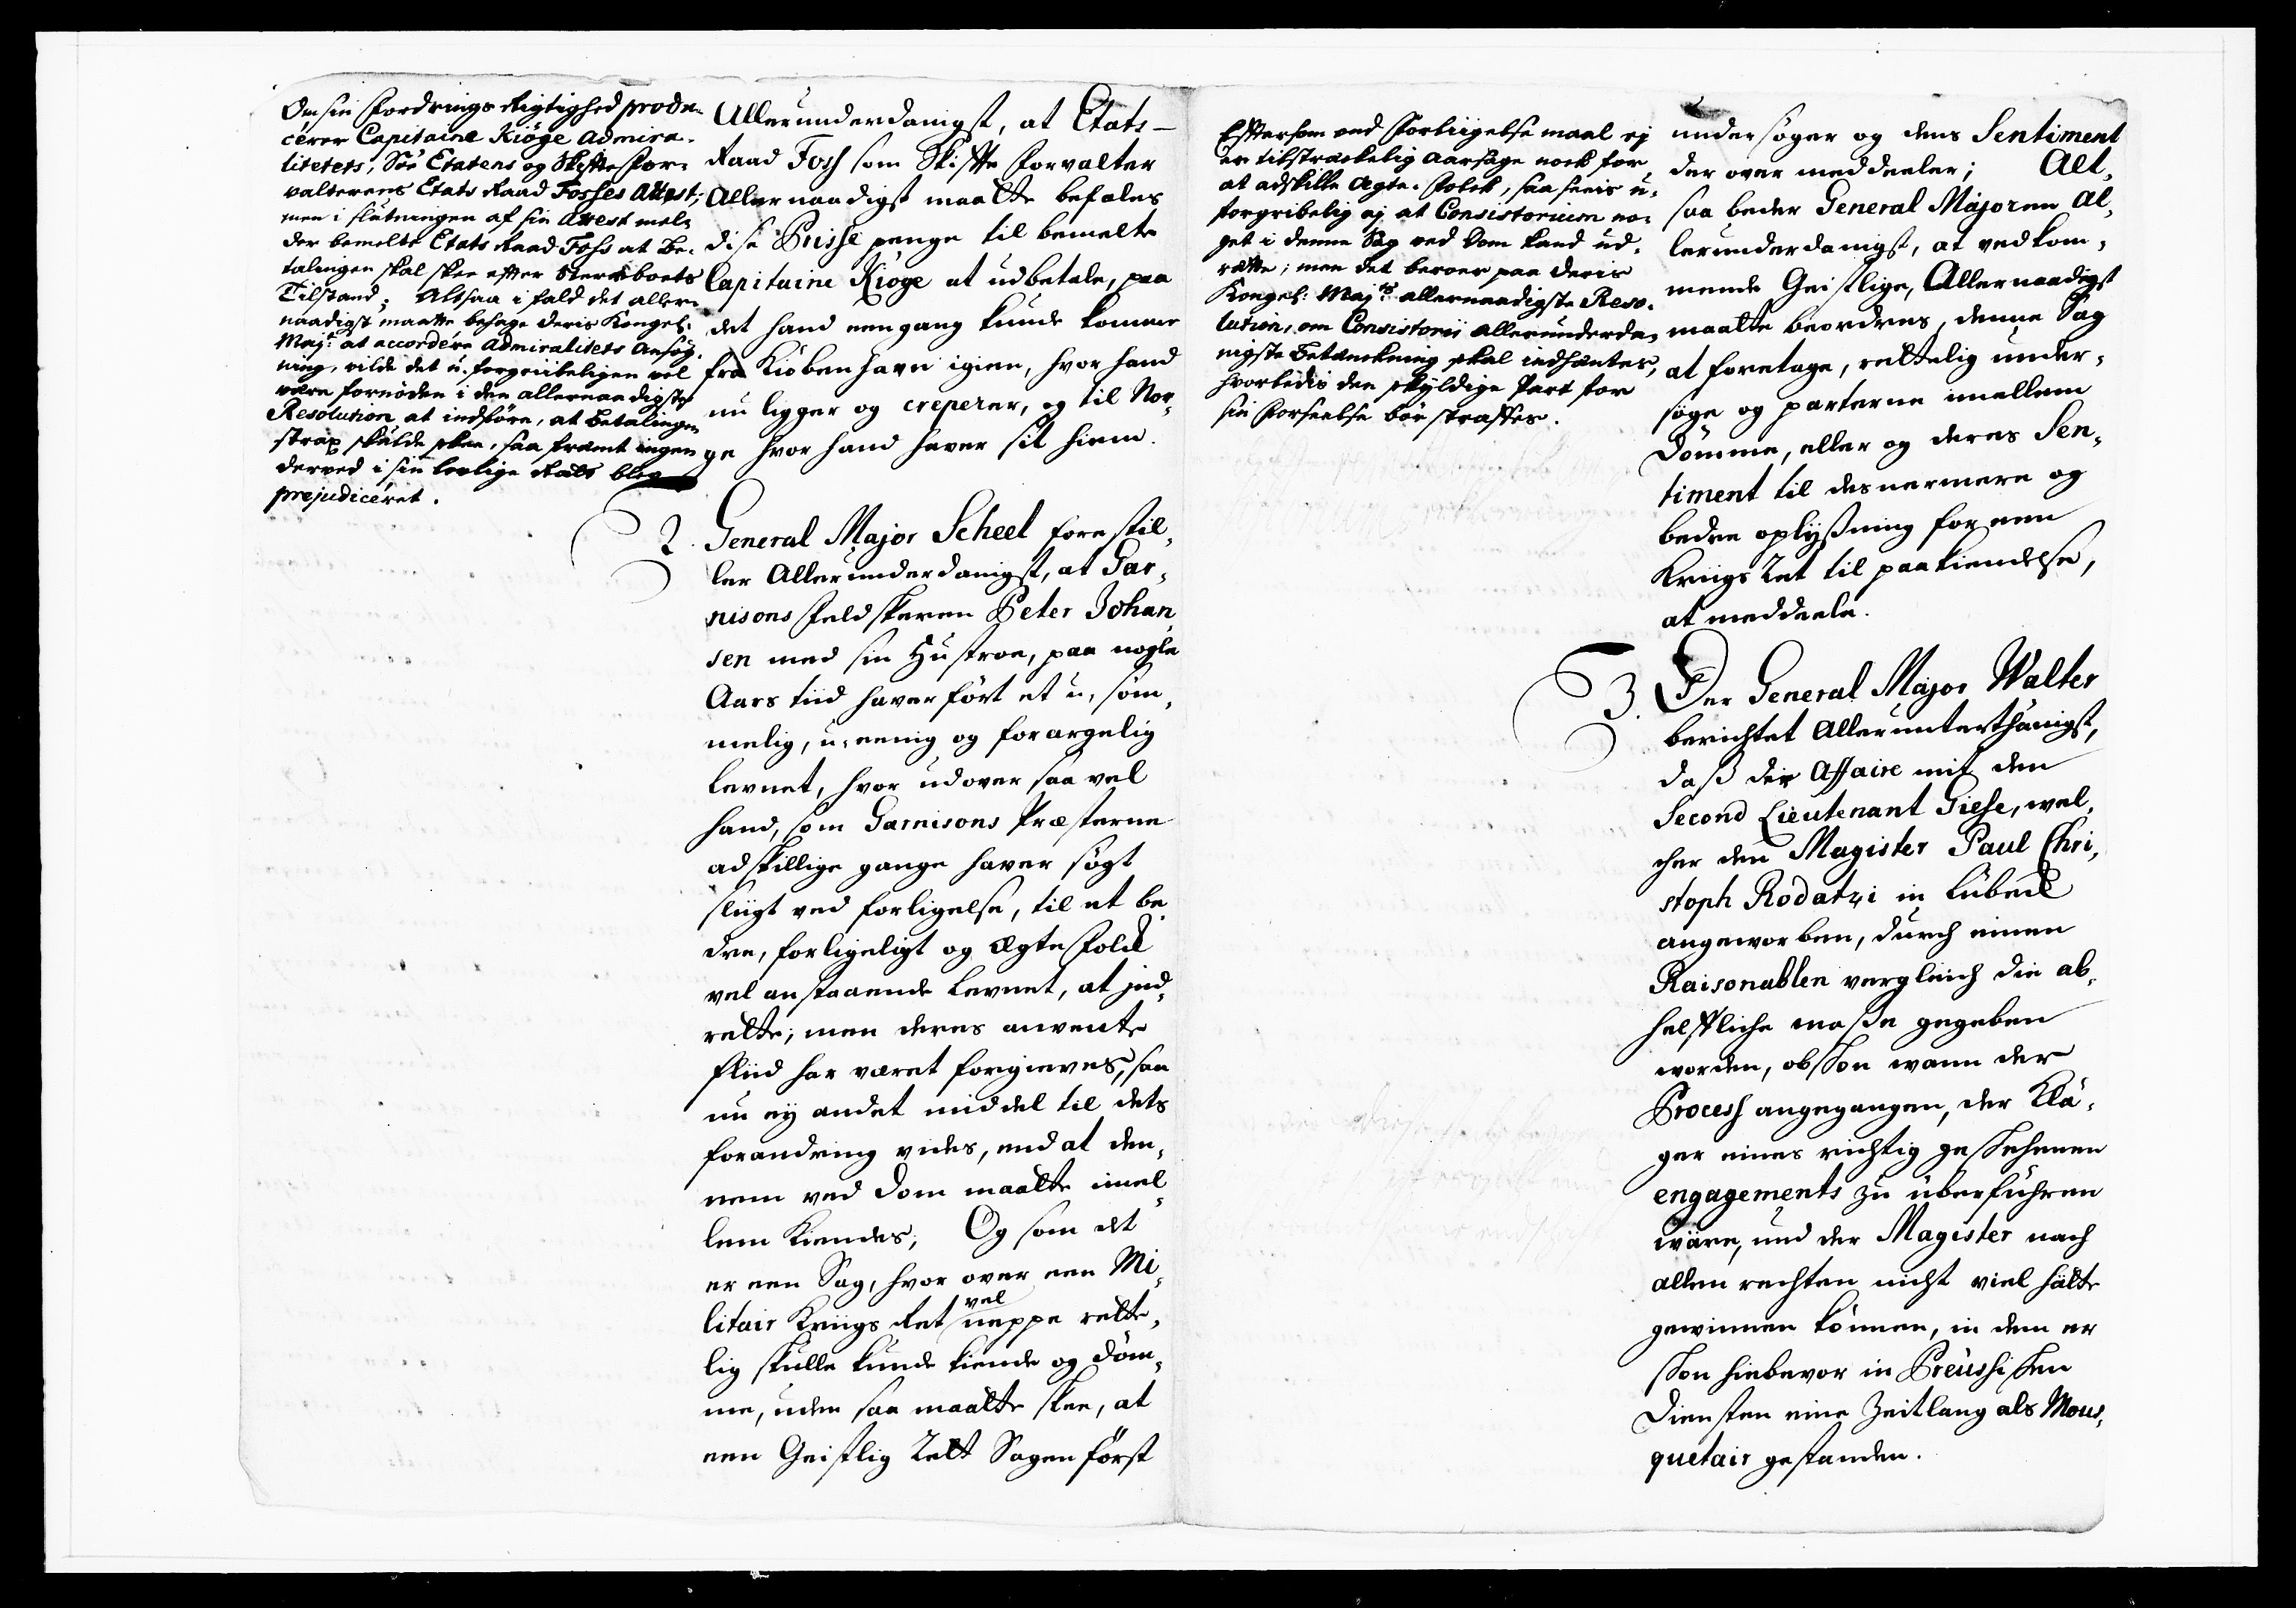 Om sin Fordrings Rigtighed produ-
cerer Capitaine Kiöge Admira-
litetets, Söe Etatens og Skiffte For-
valterens Etats Raad Fosses Attest;
men i slutningen af sin Attest mel-
der bemelte Etats Raad Foss at Be-
talingen skal skee effter Sterfboets
Tilstand; Altsaa i fald det aller-
naadigst maatte behage Deris Kongel:
Majt. at accordere Admiralitets Ansög-
ning, vilde det u-forgribeligen vel
være fornöden i den allernaadigste
Resolution at indföre, at Betalingen
strax skulde skee, saa fremt ingen
derved i sin lovlige Rætt blev
prejudiceret.
Allerunderdanigst, at Etats-
Raad Foss som Skiffte Forvalter
Allernaadigst maatte befales
disse Prisse penge til bemelte
Capitaine Kiöge at udbetale, paa
det hand eengang kunde komme
fra Kiöbenhavn igien, hvor hand
nu ligger og creperer, og til Nor-
ge hvor hand haver sit hiem.
2. General Major Scheel forestil-
ler Allerunderdanigst, at Gar-
nisons Feldskeren Peter Johan-
sen med sin Hustroe, paa nogle
Aars tiid haver fört et u-söm-
melig, u-eenig og forargelig
levnet, hvor udover saa vel
hand, som Garnisons Præsterne
adskillige gange haver sögt
sliigt ved forligelse, til et be-
dre, forligeligt og Ægte Folck
vel anstaaende levnet, at ind-
rette; men deres anvente
fliid har været forgieves, saa
nu ey andet middel til dets
forandring vides, end at den-
nem ved Dom maatte imel-
lem kiendes; Og som det
er een Sag, hvor over een Mi-
litair Kriigs Ret vel neppe rette-
lig skulle kunde kiende og döm-
me, uden saa maatte skee, at
een Geistlig Rett Sagen först
Efftersom ved Forliigelse maal ej
er tilstræckelig Aarsage nock for
at adskille Ægte-Folck, saa sees u-
forgribelig ej at Consistorium no-
get i denne Sag ved Dom kand ud-
rætte; men det beroer paa Deris
Kongel: Majts. allernaadigste Reso-
lution, om Consistorii allerunderda-
nigste Betænckning skal indhæntes,
hvorledis den skyldige Part for
sin Forseelse bör straffes.
undersöger og dens Sentiment
der over meddeeler; Alt-
saa beder General Majoren Al-
lerunderdanigst, at vedkom-
mende Geistlige, Allernaadigst
maatte beordres, denne Sag
at foretage, rettelig under-
söge og parterne imellem
Dömme, eller og deres Sen-
timent til des nermere og
bedre oplyßning for een
Kriigs Ret til paakiendelse,
at meddeele.
3. Der General Major Walter
berichtet Allerunterthänigst,
daß die Affaire mit den
Second Lieutenant Giese, wel-
cher den Magister Paul Chri-
stoph Rodatzi in Lübeck
angeworben, durch einen
Raisonablen vergleich die ab-
helffliche maße gegeben
worden, obschon wann der
Process angegangen, der Klä-
ger eines richtig geschehenen
engagements zu überführen
wäre, und der Magister nach
allen rechten nicht viel hätte
gewinnen können, in dem er
schon hiebevor in Preussischen
Diensten eine Zeitlang als Mous-
quetair gestanden.